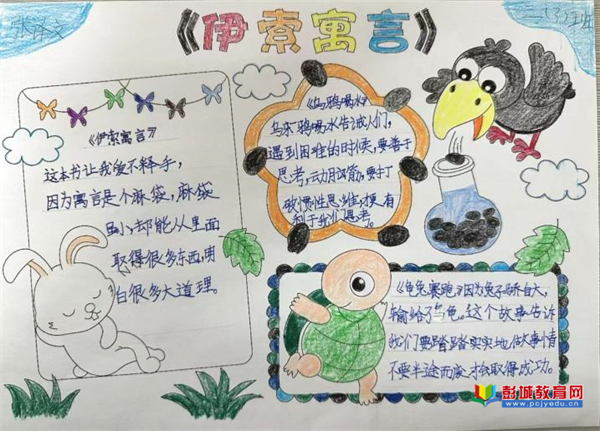 《伊索寓言》
三(3)班
《伊索寓言》
这本书让我爱不释手,
因为寓言是个麻袋,麻袋
虽小却能从里面
取得很多东西,明
白很多大道理。
《乌鸦喝水》
乌鸦喝水告诫人们,
遇到困难的时候,要善于
思考,动用脑筋,要打
破惯性思维,才更有
利于我们思考。
《龟兔赛跑》因为兔子骄傲自大,
输给了乌龟。这个故事告诉
我们要踏踏实实地做事情
不要半途而废,才会取得成功。
彭城教育网
www.pcjyedu.cn